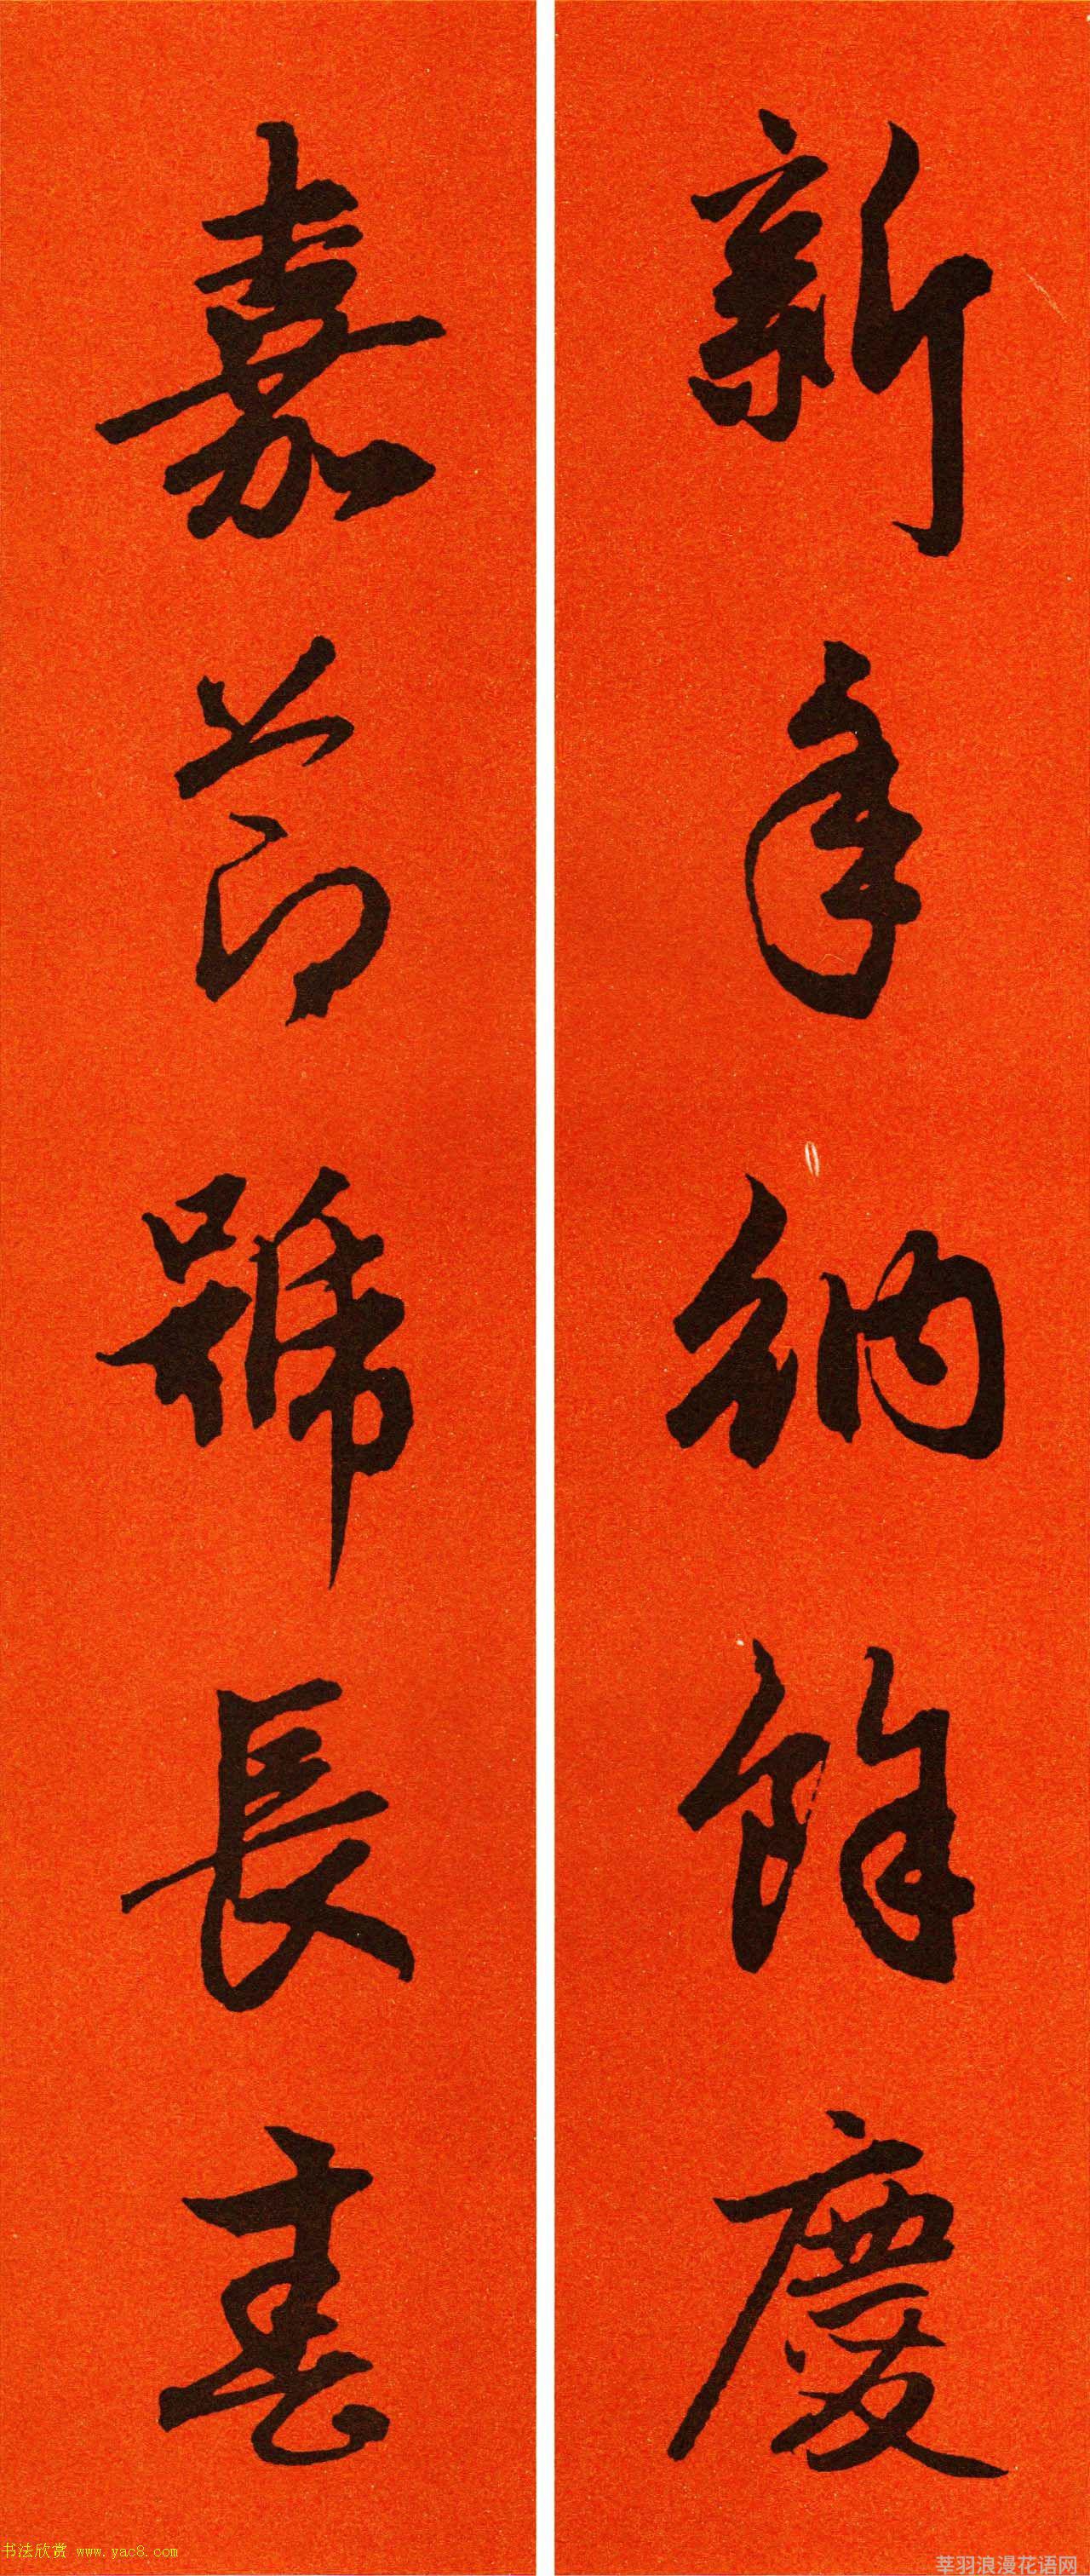 新年納餘慶
嘉節號長春
书法欣赏 www.yac8.com
莘羽浪漫花语网